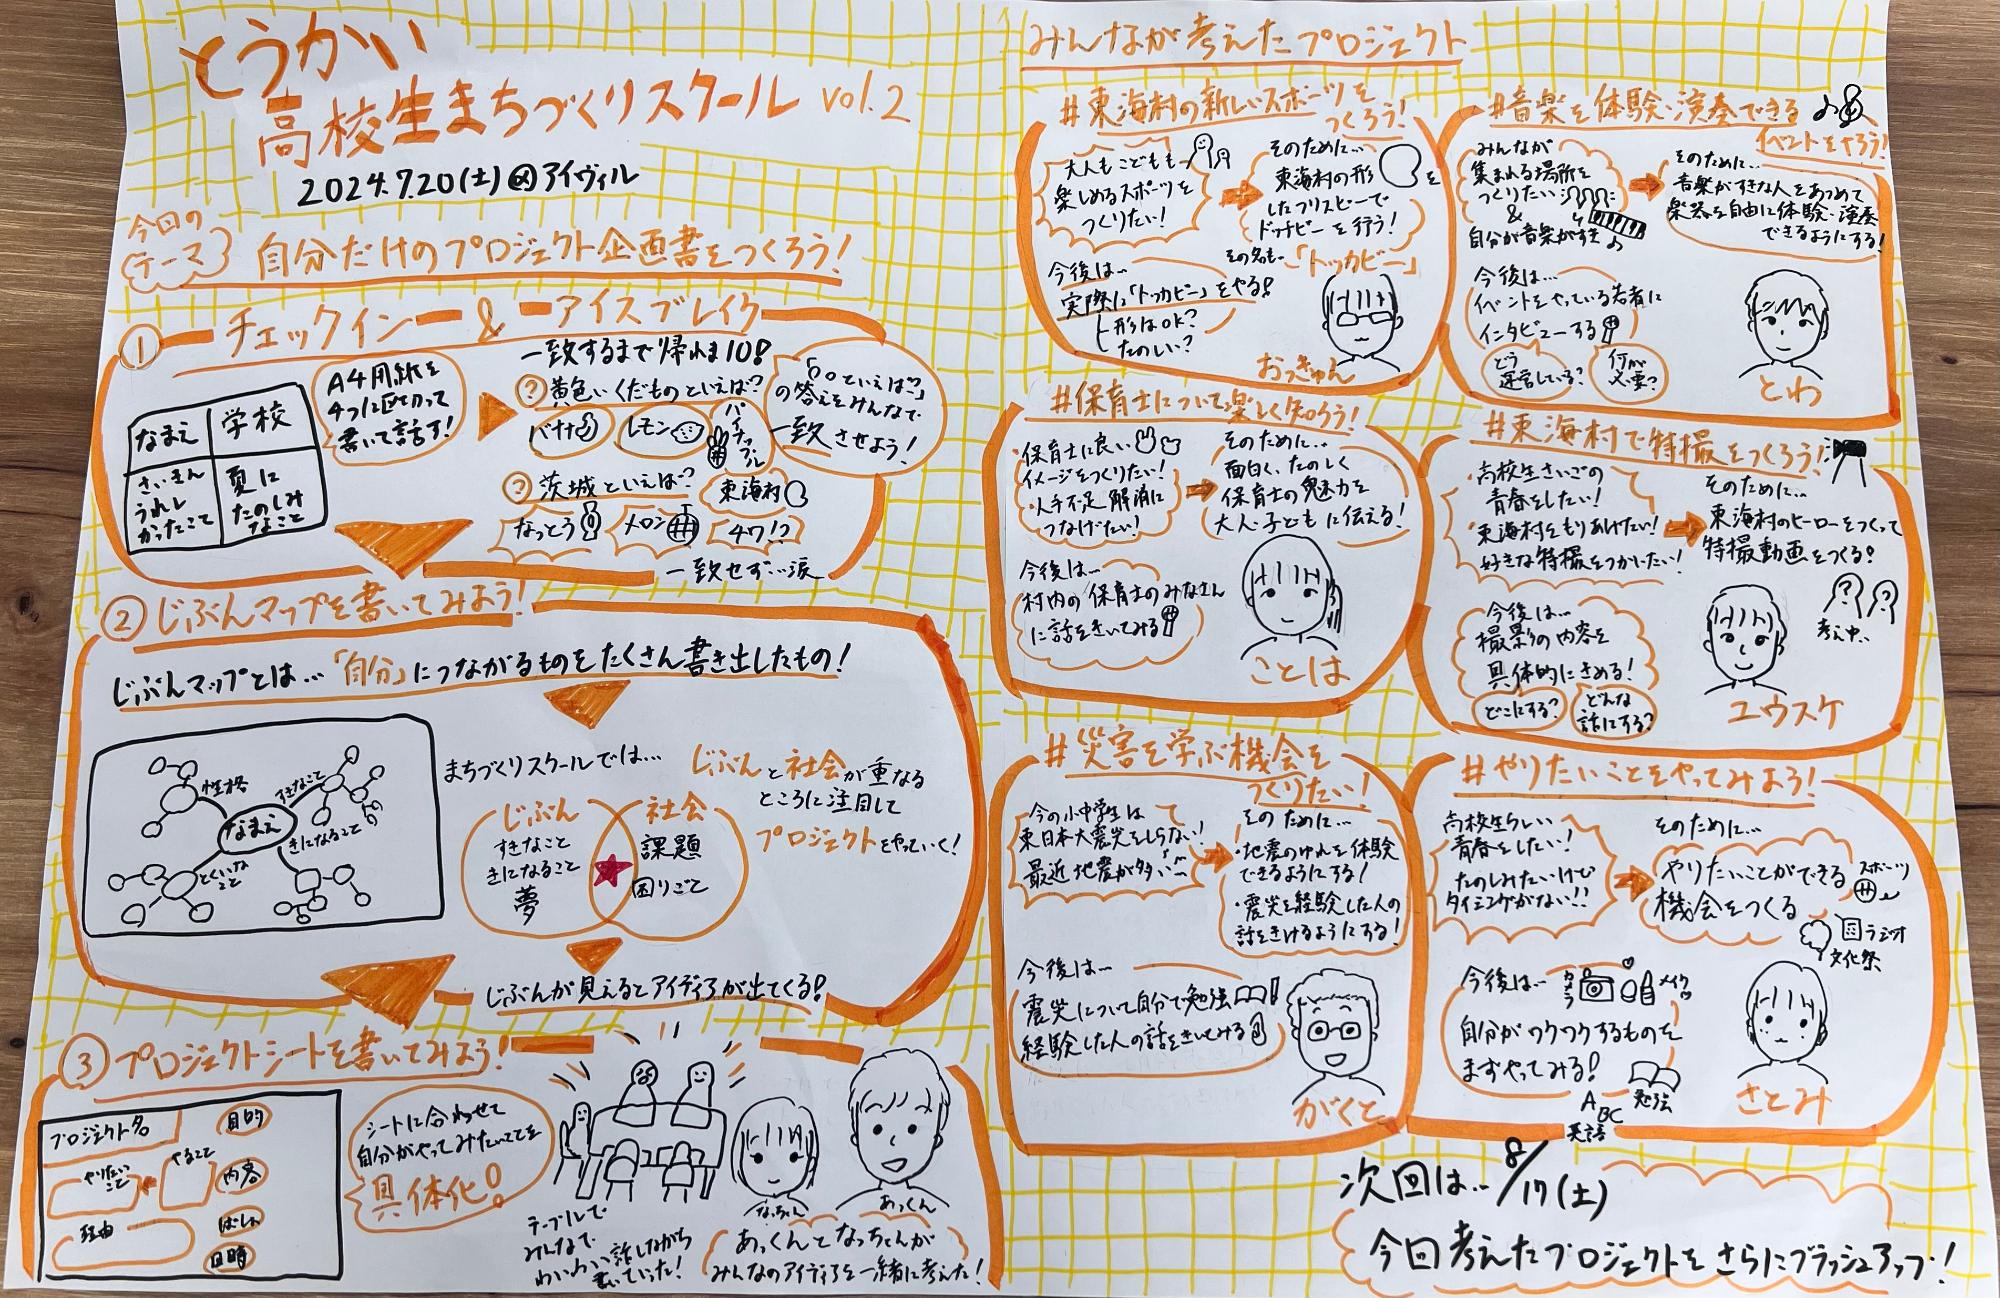 とうかい
高校生まちづくりスクール vol.2
2024.7.20(土)@アイヴィル
今回の
テーマ
自分だけのプロジェクト企画書をつくろう!
① チェックイン & アイスブレイク
なまえ
学校
さいきん
うれし
かったこと
夏に
たのしみ
なこと
A4用紙を
4つに区切って
書いて話す!
一致するまで帰れま10!
? 黄色いくだものといえば?
バナナ
レモン
パイナップル
? 茨城といえば?
東海村
なっとう
メロン
47!?
一致せず…涙
「○○といえば?」
の答えをみんなで
一致させよう!
② じぶんマップを書いてみよう!
じぶんマップとは…「自分」につながるものをたくさん書き出したもの!
性格
すきなこと
なまえ
きになること
とくいな
こと
まちづくりスクールでは…
じぶん
すきなこと
きになること
夢
社会
課題
困りごと
じぶんと社会が重なる
ところに注目して
プロジェクトをやっていく!
じぶんが見えるとアイディアが出てくる!
③ プロジェクトシートを書いてみよう!
プロジェクト名
やりたい
こと
やること
理由
目的
内容
ばしょ
日時
シートに合わせて
自分がやってみたいことを
具体化!
テーブルで
みんなで
わいわい話しながら
書いていった!
なっちゃん
あっくん
あっくんとなっちゃんが
みんなのアイディアを一緒に考えた!
みんなが考えたプロジェクト
#東海村の新しいスポーツを
つくろう!
大人もこどもも
楽しめるスポーツを
つくりたい!
そのために…
東海村の形を
したフリスビーで
ドッヂビーを行う!
その名も…「トッカビー」
今後は…
実際に「トッカビー」をやる!
形はOK?
たのしい?
おっきゅん
#音楽を体験・演奏できる
イベントをやろう!
みんなが
集まれる場所を
つくりたい
&
自分が音楽がすき♪
そのために…
音楽がすきな人をあつめて
楽器を自由に体験・演奏
できるようにする!
今後は…
イベントをやっている若者に
インタビューする
どう
運営している?
何が
必要?
とわ
#保育士について楽しく知ろう!
・保育士に良い
イメージをつくりたい!
・人手不足解消に
つなげたい!
そのために…
面白く、たのしく
保育士の魅力を
大人・子どもに伝える!
今後は…
村内の保育士のみなさん
に話をきいてみる
ことは
#東海村で特撮をつくろう!
・高校生さいごの
青春をしたい!
・東海村をもりあげたい!
好きな特撮をつかいたい!
そのために…
東海村のヒーローをつくって
特撮動画をつくる!
考え中…
今後は…
撮影の内容を
具体的にきめる!
どこにする?
どんな
話にする?
ユウスケ
#災害を学ぶ機会を
つくりたい!
今の小中学生は
東日本大震災をしらない!
最近地震が多い…
そのために…
・地震のゆれを体験
できるようにする!
・震災を経験した人の
話をきけるようにする!
今後は…
震災について自分で勉強
経験した人の話をきいてみる
がくと
#やりたいことをやってみよう!
高校生らしい
青春をしたい!
たのしみたいけど
タイミングがない!!
そのために…
やりたいことができる
機会をつくる
スポーツ
ラジオ
文化祭
今後は…
カメラ
メイク
自分がワクワクするものを
まずやってみる!
勉強
ABC
英語
さとみ
次回は… 8/17(土)
今回考えたプロジェクトをさらにブラッシュアップ!